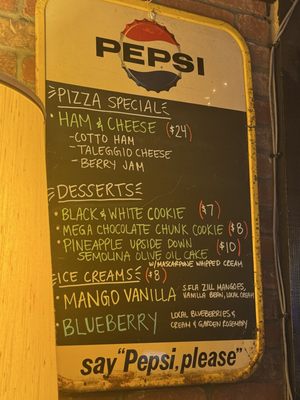 PEPSI
PIZZA SPECIAL
• HAM & CHEESE ($24)
- COTTO HAM
- TALEGGIO CHEESE
- BERRY JAM
DESSERTS
• BLACK & WHITE COOKIE ($7)
• MEGA CHOCOLATE CHUNK COOKIE ($8)
• PINEAPPLE UPSIDE DOWN ($10)
SEMOLINA OLIVE OIL CAKE
W/ MASCARPONE WHIPPED CREAM
ICE CREAMS ($8)
• MANGO VANILLA S.FLA ZILL MANGOES,
VANILLA BEAN, LOCAL CREAM
• BLUEBERRY LOCAL BLUEBERRIES &
CREAM & GARDEN ROSEMARY
say "Pepsi, please"